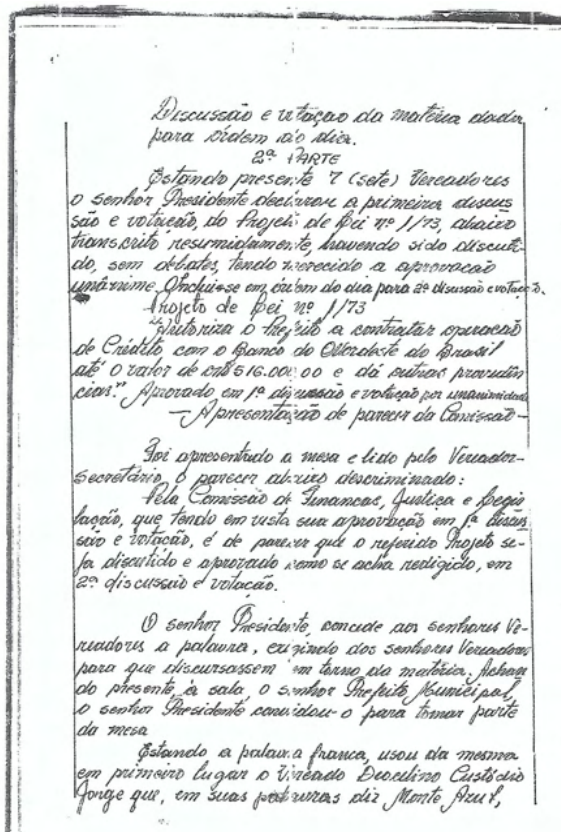 Discussão e votação da matéria dada
para ordem do dia.
2ª PARTE
Estando presente 7 (sete) Vereadores
o senhor Presidente declarou a primeira discus
são e votação, do Projeto de Lei nº 1/73, abaixo
transcrito resumidamente, havendo sido discuti-
do, sem debates, tendo merecido a aprovação
unânime. Inclui-se em ordem do dia para 2ª discussão e votação.
Projeto de Lei nº 1/73
"Autoriza o Prefeito a contratar operação
de Crédito, com o Banco do Nordeste do Brasil
até o valor de cr$ 516.000,00 e dá outras providên
cias." Aprovado em 1ª discussão e votação por unanimidade
— Apresentação de parecer da Comissão —
Foi apresentado a mesa e lido pelo Vereador-
secretário, o parecer abaixo descriminado:
Pela Comissão de Finanças, Justiça e Legis
lação, que tendo em vista sua aprovação em 1ª discus
são e votação, é de parecer que o referido Projeto se-
ja discutido e aprovado como se acha redigido, em
2ª discussão e votação.
O senhor Presidente, concede aos senhores Ve-
readores a palavra, exigindo dos senhores Vereadores
para que discursassem em torno da matéria. Achan
do presente à sala, o senhor Prefeito Municipal,
o senhor Presidente convidou-o para tomar parte
da mesa
Estando a palavra franca, usou da mesma
em primeiro lugar o Vereado Custódio
Jorge que, em suas palavras diz Monte Azul,